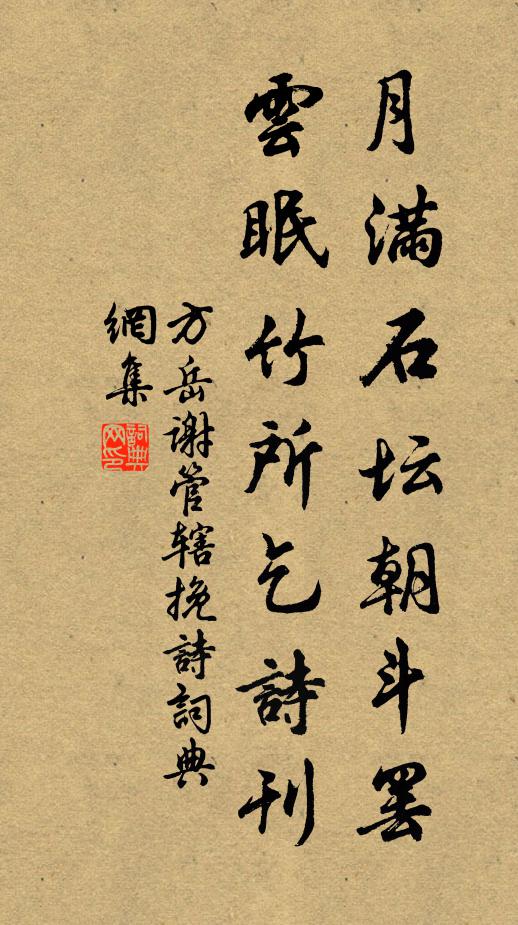 月满石坛朝斗罢
雲眠竹所乞詩刊
方岳谢管辖挽詩詞典
網集
詞典
网印